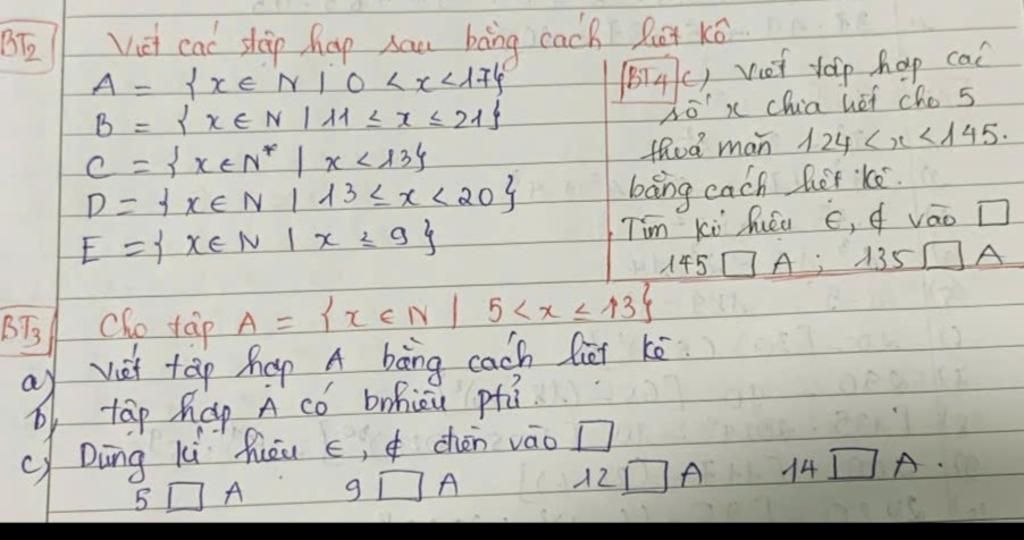 BT2 Viết các tập hợp sau bằng cách liệt kê.
A = {x ∈ N | 0 < x < 17}
B = {x ∈ N | 11 ≤ x ≤ 21}
C = {x ∈ N* | x < 13}
D = {x ∈ N | 13 ≤ x < 20}
E = {x ∈ N | x ≥ 9}
BT4 c) Viết tập hợp các
số x chia hết cho 5
thoả mãn 124 < x < 145.
bằng cách liệt kê.
Tìm kí hiệu ∈, ∉ vào □
145 □ A ; 135 □ A
BT3 Cho tập A = {x ∈ N | 5 < x ≤ 13}
a) Viết tập hợp A bằng cách liệt kê.
b) tập hợp A có bnhiêu ptử.
c) Dùng kí hiệu ∈, ∉ điền vào □
5 □ A 9 □ A 12 □ A 14 □ A.